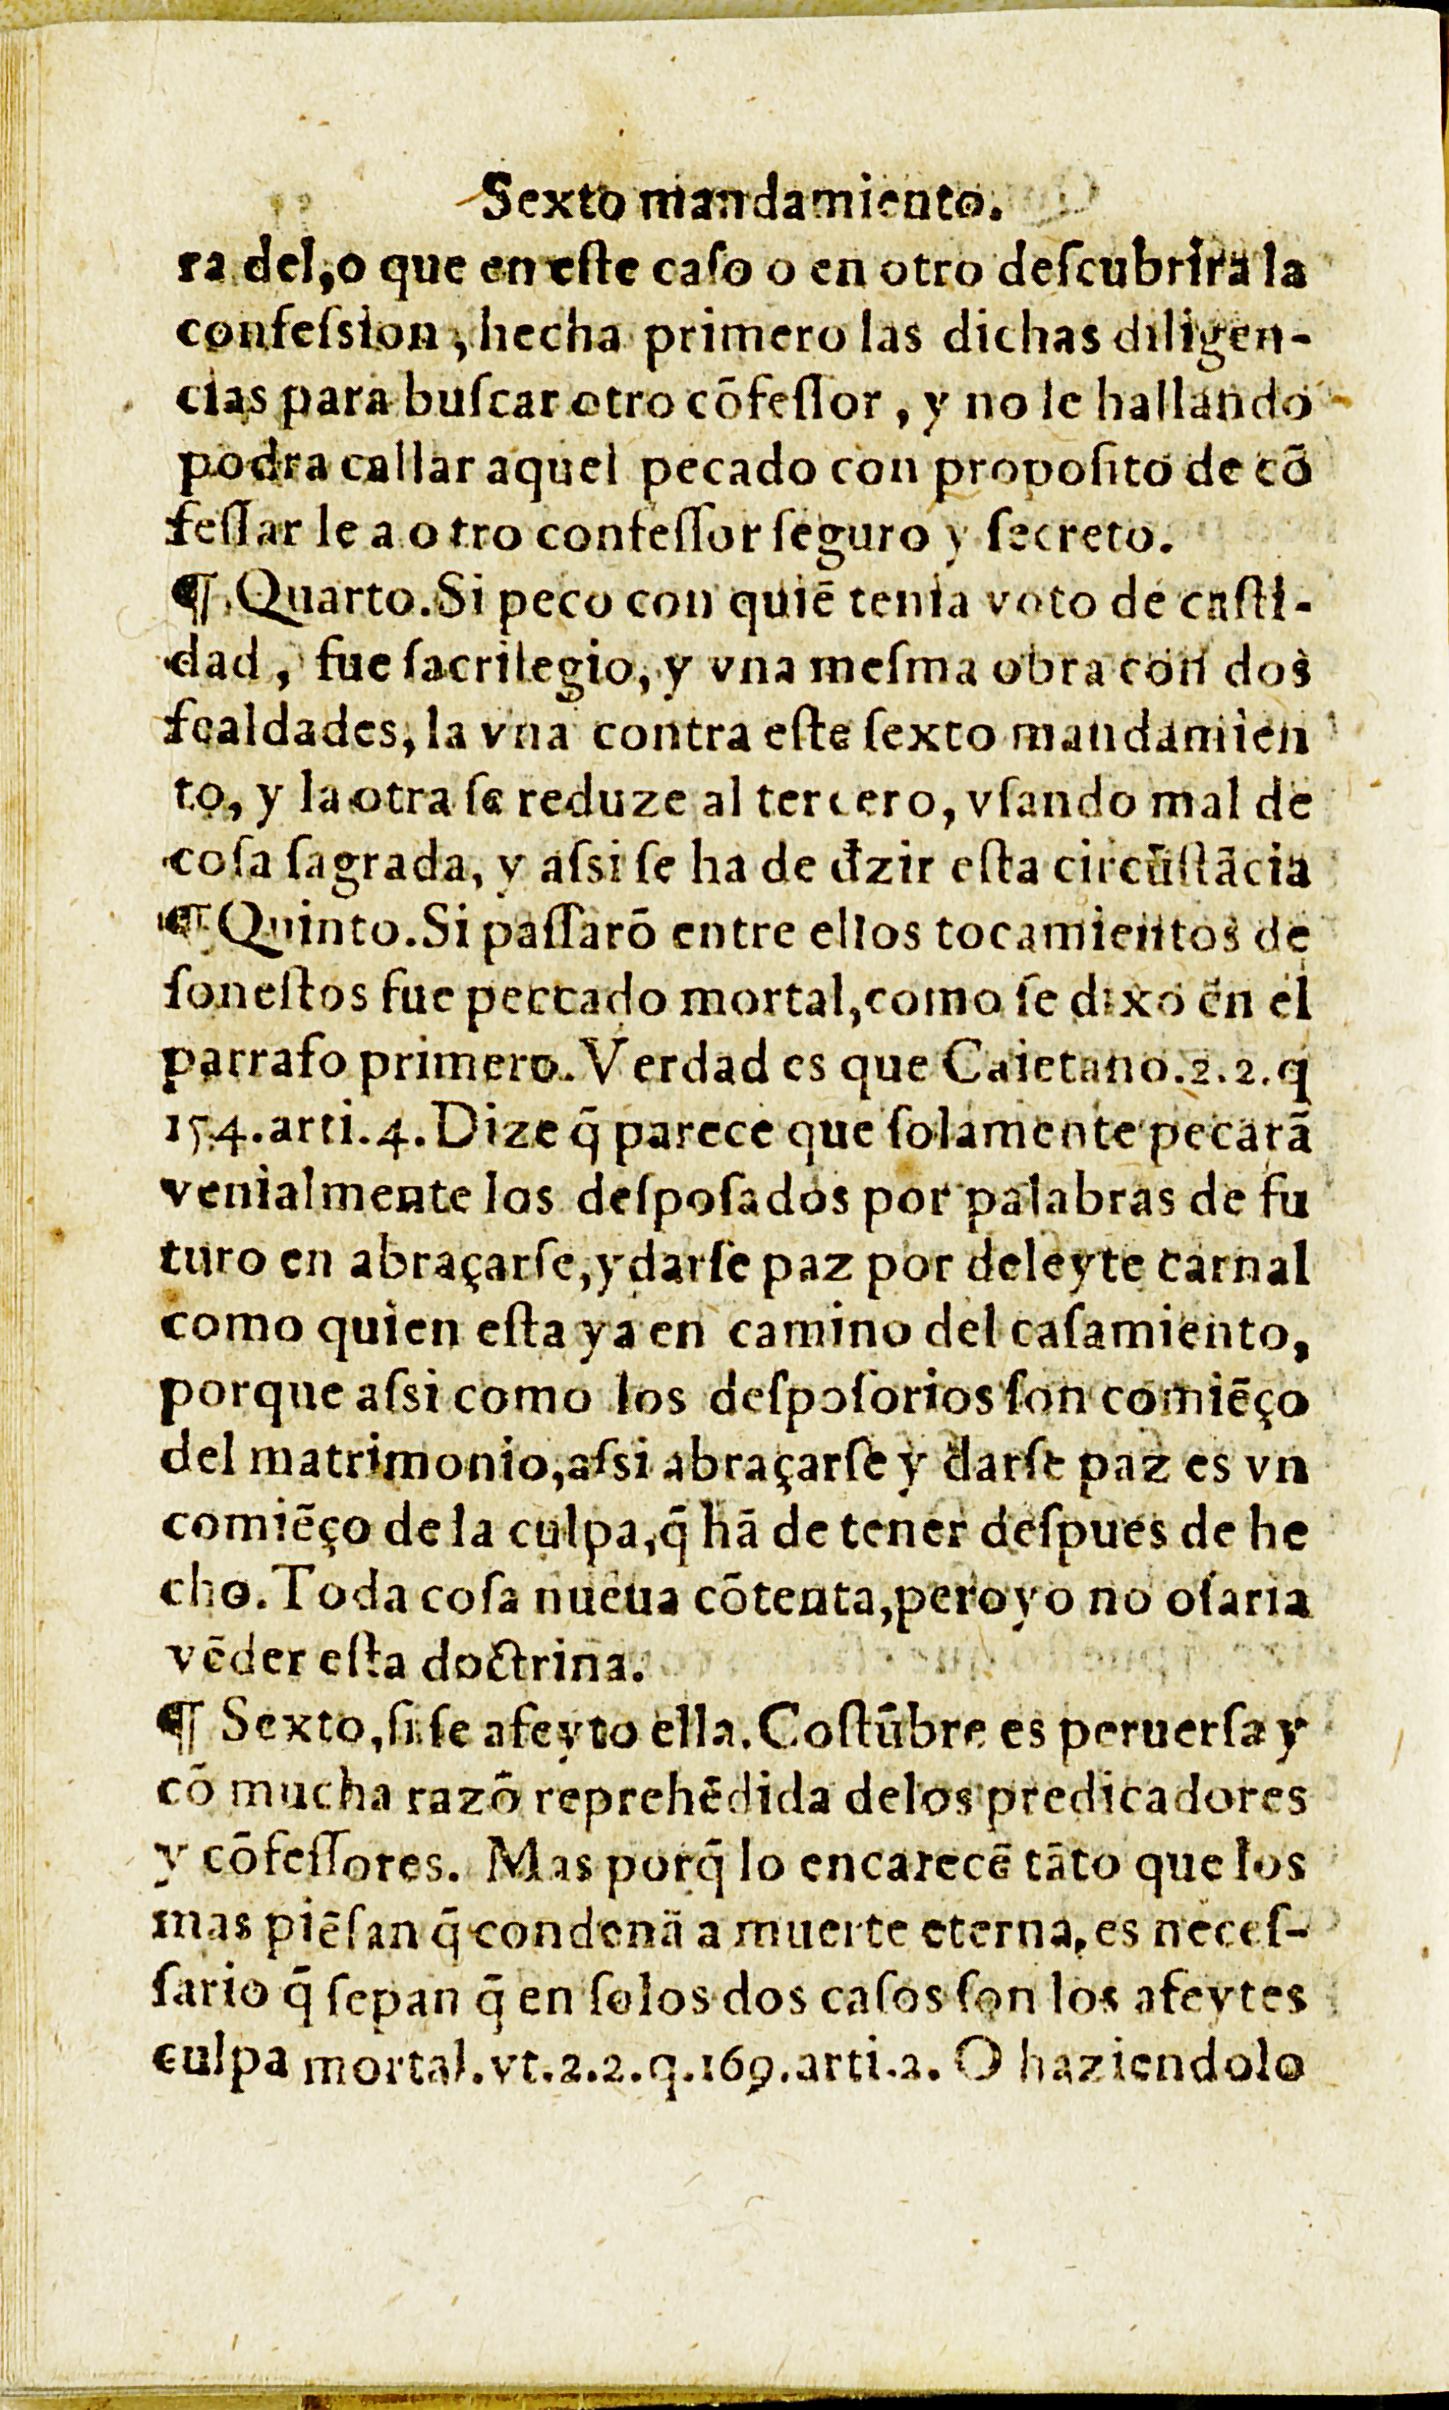 Sexto mandamiento.
ra del, o que en eſte caſo o en otro deſcubrira la
confeſsion, hecha primero las dichas diligen-
cias para buſcar otro cõfeſſor, y no le hallando
podra callar aquel pecado con propoſito de cõ
feſſar le a otro confeſſor ſeguro y ſecreto.
¶ Quarto. Si peco con quiẽ tenia voto de caſti-
dad, fue ſacrilegio, y vna meſma obra con dos
fealdades, la vna contra eſte ſexto mandamien
to, y la otra ſe reduze al tercero, vſando mal de
coſa ſagrada, y aſsi ſe ha de đzir eſta circũſtãcia
¶ Quinto. Si paſſarõ entre ellos tocamientos de
ſoneſtos fue peccado mortal, como ſe dixo en el
parrafo primero. Verdad es que Caietano. 2. 2. q
154. arti. 4. Dize q̃ parece que ſolamente pecarã
venialmente los deſpoſados por palabras de fu
turo en abraçarſe, y darſe paz por deleyte carnal
como quien eſta ya en camino del caſamiento,
porque aſsi como los deſpoſorios ſon comiẽço
del matrimonio, aſsi abraçarſe y darſe paz es vn
comiẽço de la culpa, q̃ hã de tener deſpues de he
cho. Toda coſa nueua cõtenta, pero yo no oſaria
vẽder eſta doctrina.
¶ Sexto, ſi ſe afeyto ella. Coſtũbre es peruerſa y
cõ mucha razõ reprehẽdida delos predicadores
y cõfeſſores. Mas porq̃ lo encarecẽ tãto que los
mas piẽſan q̃ condenã a muerte eterna, es neceſ-
ſario q̃ ſepan q̃ en ſolos dos caſos ſon los afeytes
culpa mortal. vt. 2. 2. q. 169. arti. 2. O haziendolo